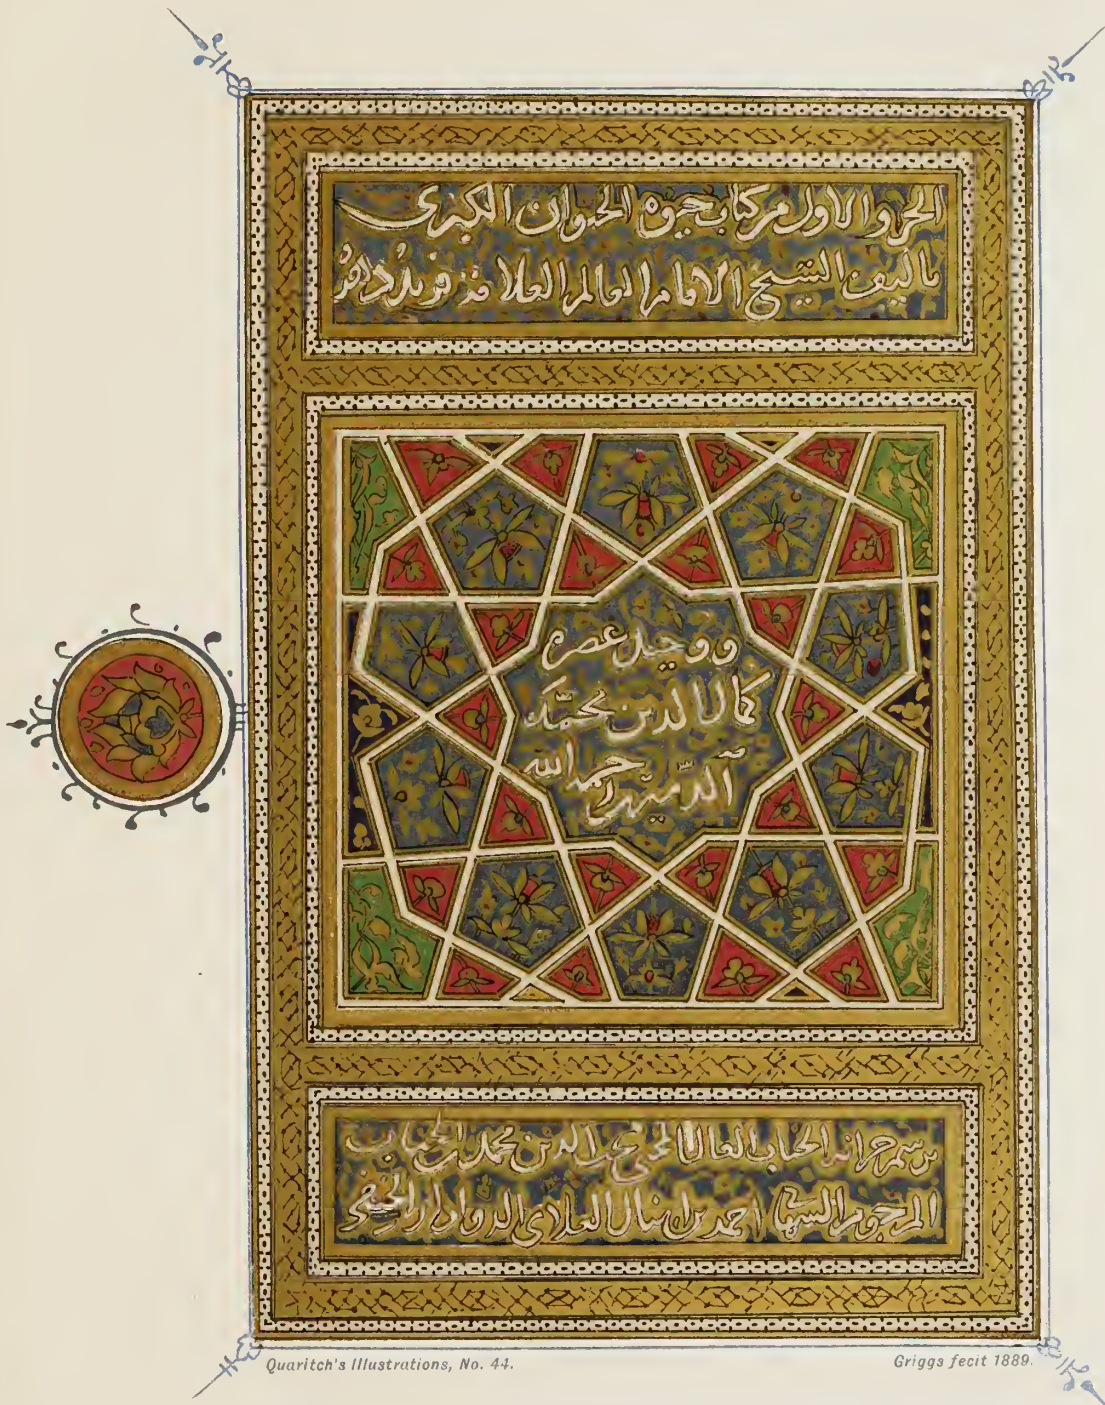 الجزو الاول من كتاب حيوة الحيوان الكبرى
تاليف الشيخ الامام العالم العلامة فريد دهره
ووحيد عصره
كمال الدين محمد
الدميرى رحمه الله
برسم خزانه الجناب العالى المحبى محمد
المرحوم الشهابى احمد بن اينال العلاى الدوادار الحنفى
Quaritch's Illustrations, No. 44.
Griggs fecit 1889.